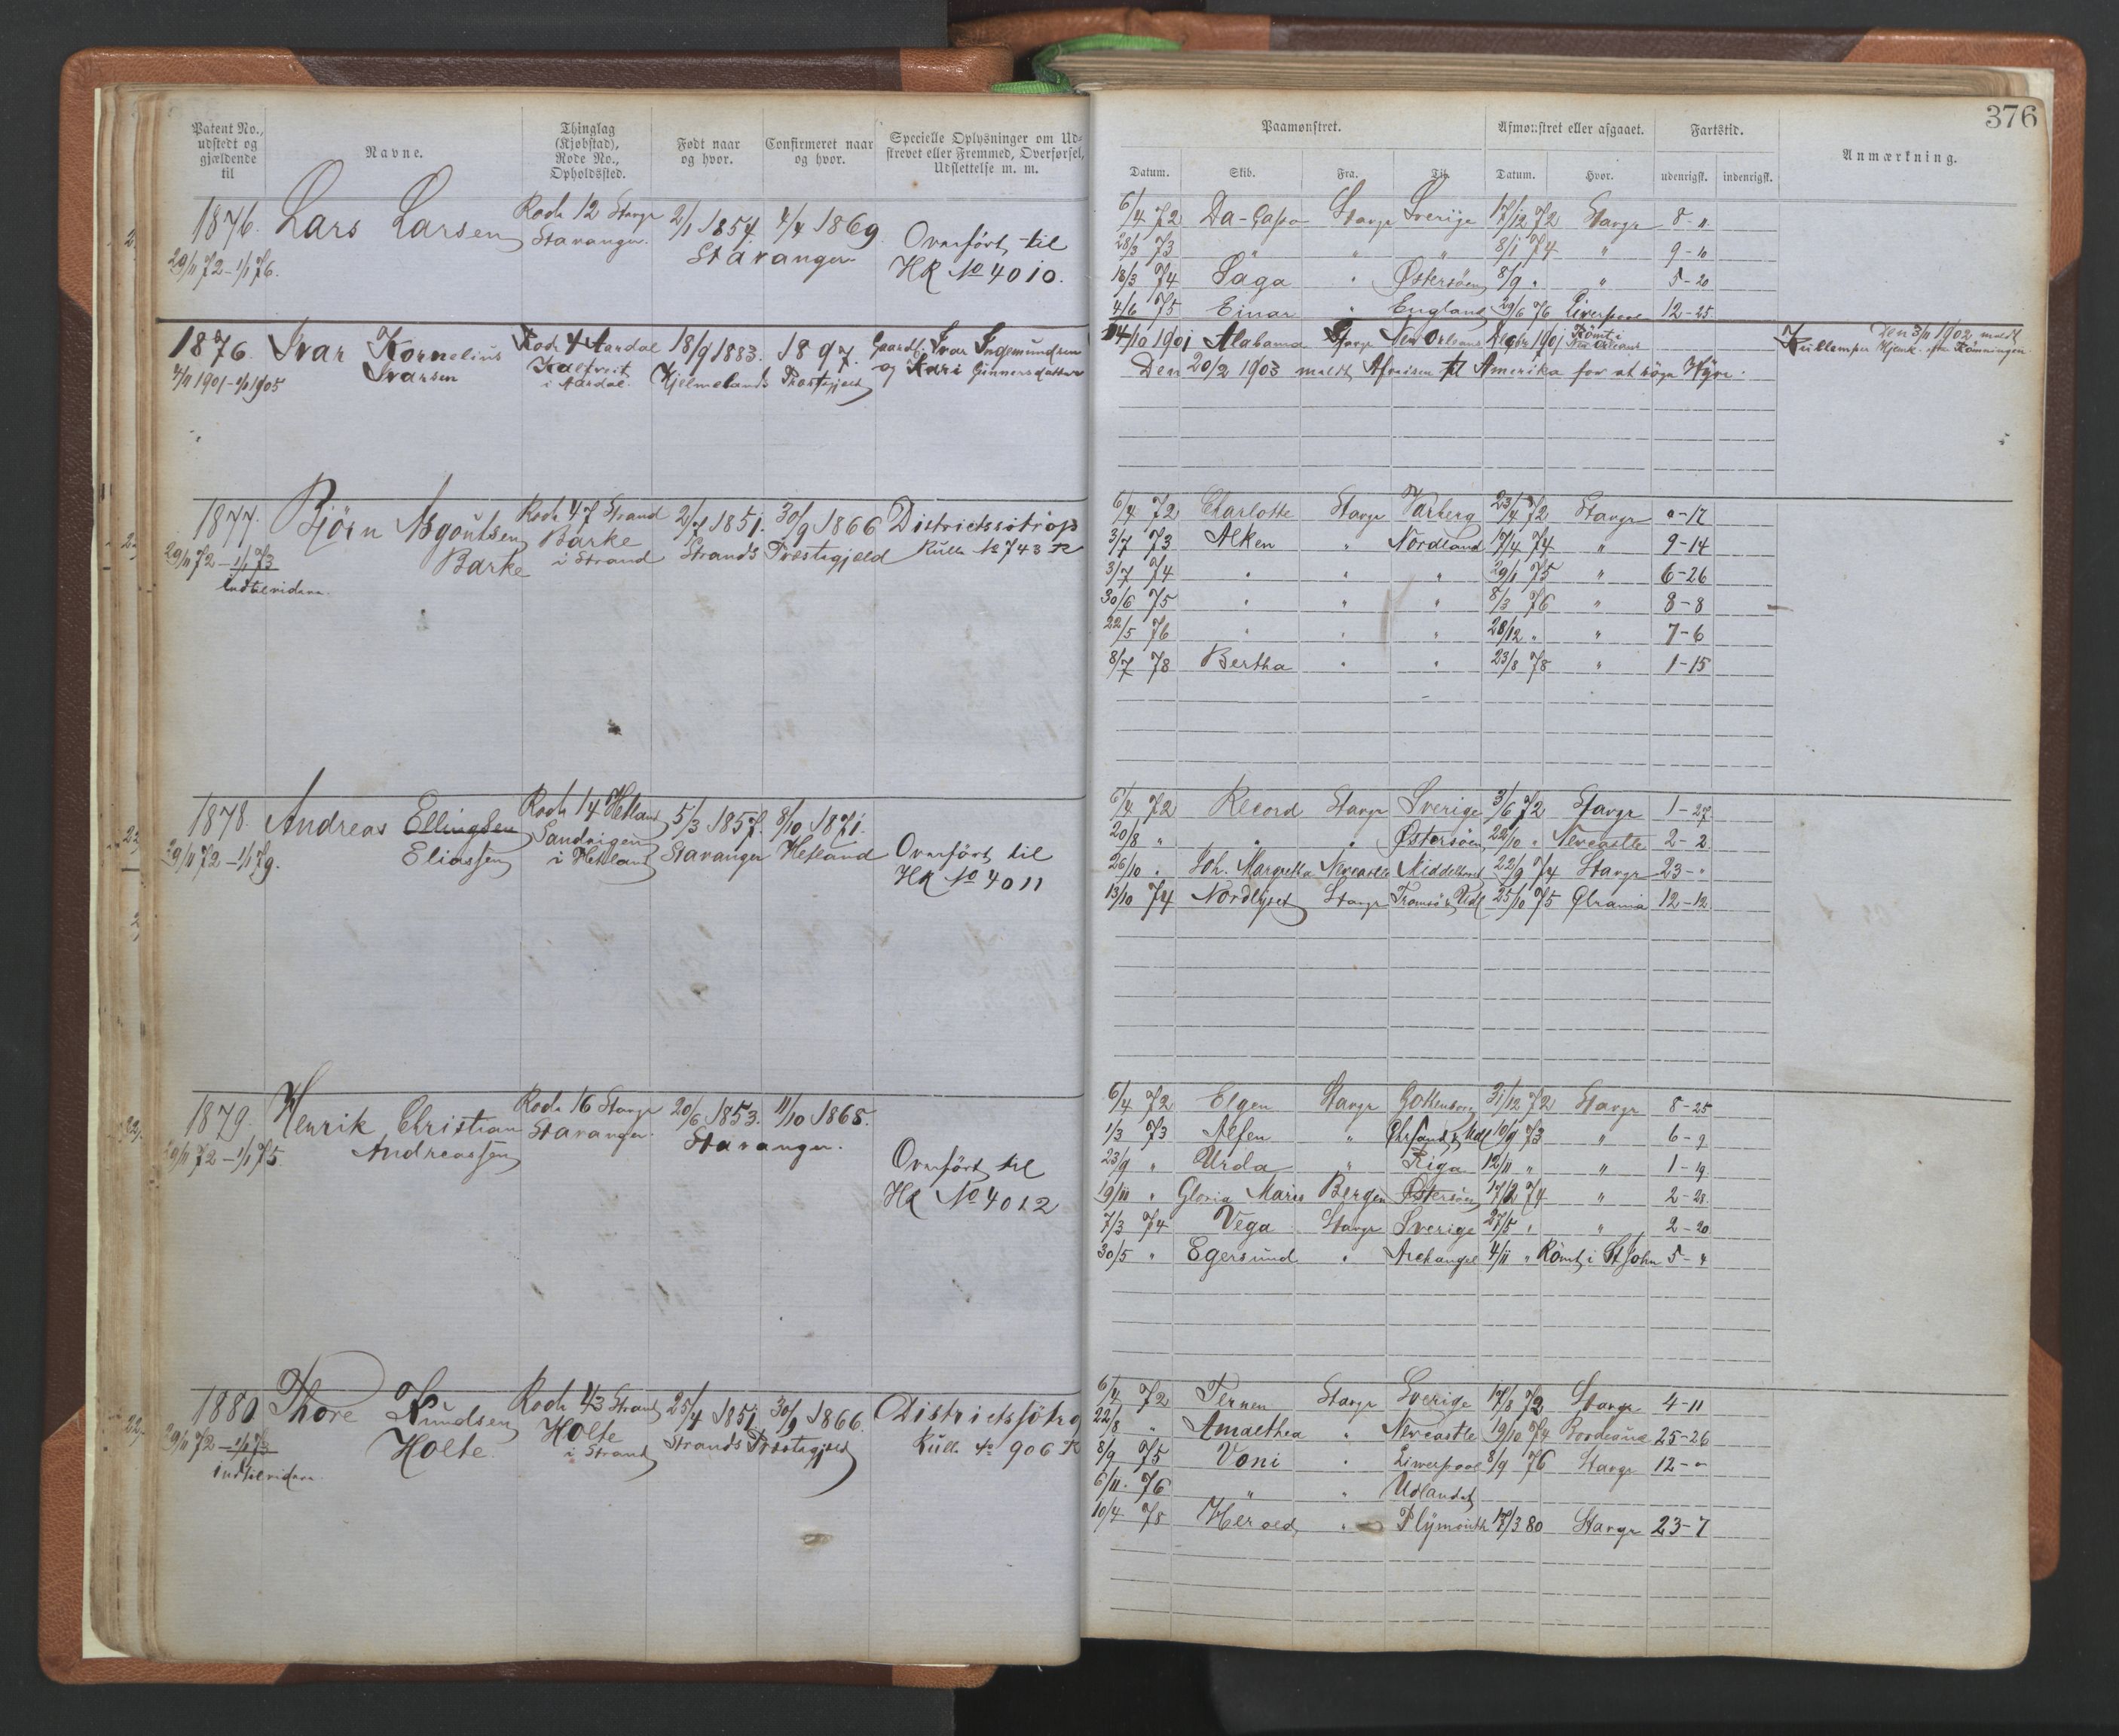 376
Patent No., udstedt og gjældende til
Navne.
Thinglag (Kjøbstad), Rode No., Opholdssted.
Født naar og hvor.
Confirmeret naar og hvor.
Specielle Oplysninger om Udstrevet eller Fremmed, Overførsel, Udslettelse m. m.
Paamønstret.
Afmønstret eller afgaaet.
Fartstid.
Anmærkning.
Datum. Skib. Fra. Til. Datum. Hvor. udenrigsk. indenrigsk.
1876. Lars Larsen Rode 12 Stavgr 2/1 1854 4/4 1869
Stavanger. Stavanger Overført til
29/11 72 - 1/1 76. HR No 4010.
6/4 72 Da-Capo Stavgr Sverige 17/12 72 Stavgr 8 - "
28/3 73 " " " 8/1 74 " 9 - 10
18/3 74 Saga " Østersøen 8/9 " " 5 - 20
4/6 75 Einar " England 29/6 76 Liverpool 12 - 25
1876. Ivar Kornelius Rode 4 Aardal 18/9 1883. 1897. Gaardb. Ivar Ingemundsen
Ivarsen Kaltveit Hjelmelands Præstegjeld og Kari Ginnersdatter
4/11 1901 - 1/1 1905 i Aardal.
14/10 1901 Alabama Stavgr New Orleans Decbr 1901 Römt i New Orleans
Den 3/11 1902 meldt
Hjemk. efter Römningen.
Den 20/2 1903 meldt Afreisen til Amerika for at søge Hyre.
1877. Bjørn Asgoutsen Rode 47 Strand 2/7 1851. 30/9 1866 Districtssotrop
Barke Barke i Strand Strands Præstegjeld Rulle No 743 R
29/11 72 - 1/1 73
indtilvidere.
6/4 72 Charlotte Stavgr Varberg 23/4 72 Stavgr 0 - 17
3/7 73 Alken " Nordland 17/4 74 " 9 - 14
3/7 74 " " " 29/1 75 " 6 - 26
30/6 75 " " " 8/3 76 " 8 - 8
22/5 76 " " " 28/12 " " 7 - 6
8/7 78 Bertha " " 23/8 78 " 1 - 15
1878. Andreas Ellingsen Rode 14 Hetland 5/3 1857. 8/10 1871.
Eliassen Sandvigen i Hetland Stavanger Hetland Overført til
29/11 72 - 1/1 79. HR No 4011
6/4 72 Record Stavgr Sverige 3/6 72 Stavgr 1 - 27
20/8 " " " Østersøen 22/10 " Newcastle 2 - 2
26/10 " Joh. Margretha Newcastle Middelhavet 22/9 74 Stavgr 23 - "
13/10 74 Nordlyset Stavgr Tromsö & Udl 25/10 75 Ghrania 12 - 12
1879. Henrik Christian Rode 16 Stavgr 20/6 1853. 11/10 1868.
Andreassen Stavanger. Stavanger. Overført til
29/11 72 - 1/1 75. HR No 4012
6/4 72 Elgen Stavgr Gothenborg 31/12 72 Stavgr 8 - 25
1/3 73 Alfen " Chrsand & Udl 10/9 73 " 6 - 9
23/9 " Urda " Riga 12/11 " " 1 - 19
19/11 " Gloria Maris Bergen Østersøen 17/2 74 " 2 - 28
7/3 74 Vega Stavgr Sverige 27/5 " " 2 - 20
30/5 " Egersund " Archangel 4/11 " Römt i St John 5 - 4
1880 Thore Knudsen Rode 43 Strand 25/4 1851 30/9 1866. Districtssötrop
Holte Holte i Strand Strands Præstegjeld Rulle No 906 R
29/11 72 - 1/1 73
indtilvidere
6/4 72 Ternen Stavgr Sverige 17/8 72 Stavgr 4 - 11
22/8 " Amalthea " Newcastle 19/10 74 Bordeaux 25 - 26
8/9 75 Voni " Liwerpool 8/9 76 Stavgr 12 - "
6/11 76 " " Udlandet
10/4 78 Herold " Plymouth 17/3 80 Stavgr 23 - 7